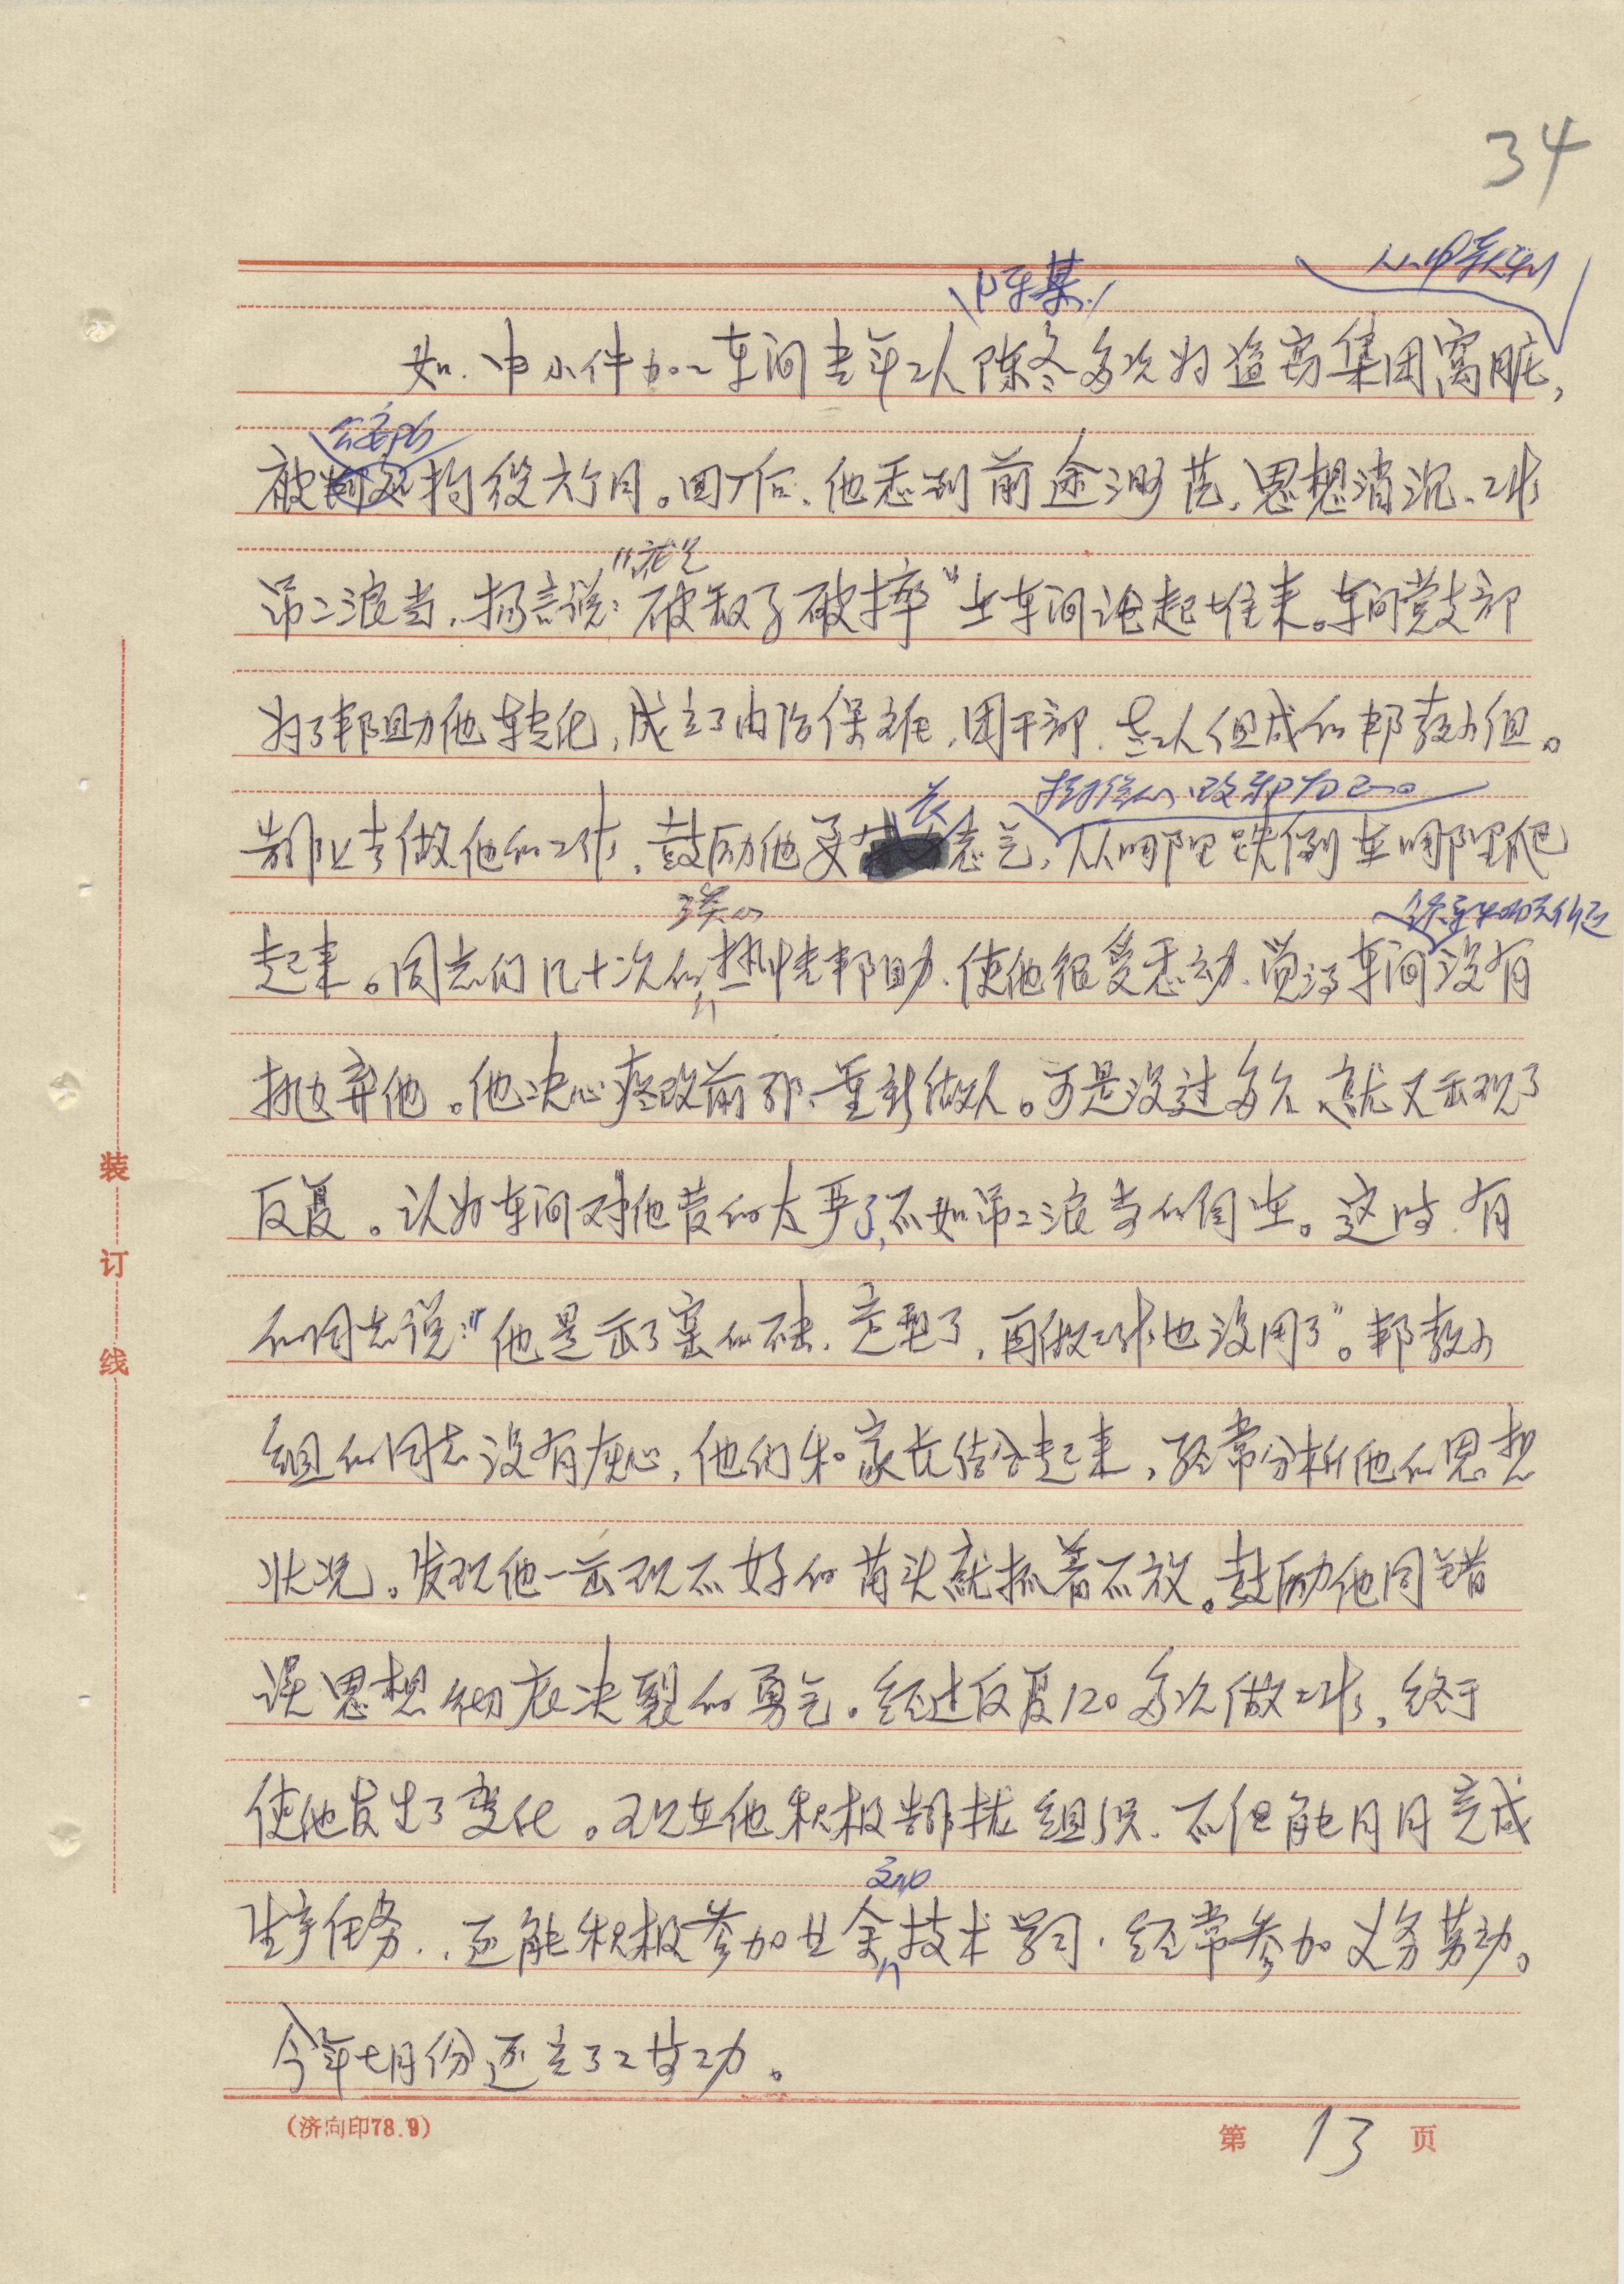 34
陈某 从中获利
如,中小件加工车间青年工人陈冬多次为盗窃集团窝脏,
公安部门
被判处拘役六个月。回厂后,他感到前途渺茫,思想消沉、工作
就是
吊二浪当,扬言说:"破瓢子破摔"在车间论起堆来。车间党支部
为了帮助他转化,成立了由治保主任、团干部、老工人组成的帮教小组。
长
都正去做他的工作,鼓励他要志气,从哪里跌倒在哪里爬
改邪归正。
诚心
起来。同志们几十次的热忱帮助、使他很受感动、觉得车间没有
抛弃他。他决心痛改前非、重新做人。可是没过多久、就又出现了
反复。认为车间对他管的太严了,不如吊二浪当的自在。这时,有
的同志说:"他是出了窑的砖,定型了,再做工作也没用了"。帮教小
组的同志没有灰心,他们和家长结合起来,经常分析他的思想
状况。发现他一出现不好的苗头就抓着不放。鼓励他同错
误思想彻底决裂的勇气。经过反复120多次做工作,终于
使他发生了变化。现在他积极靠拢组织、不但能月月完成
文化
生产任务,还能积极参加业余技术学习,经常参加义务劳动。
今年七月份还立了二等功。
装
订
线
(济向印78.9)
第 13 页